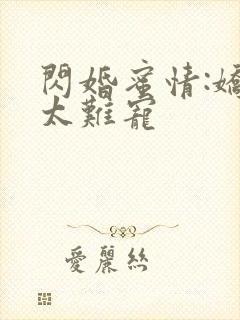 閃婚蜜情:嬌
太難寵
愛麗絲